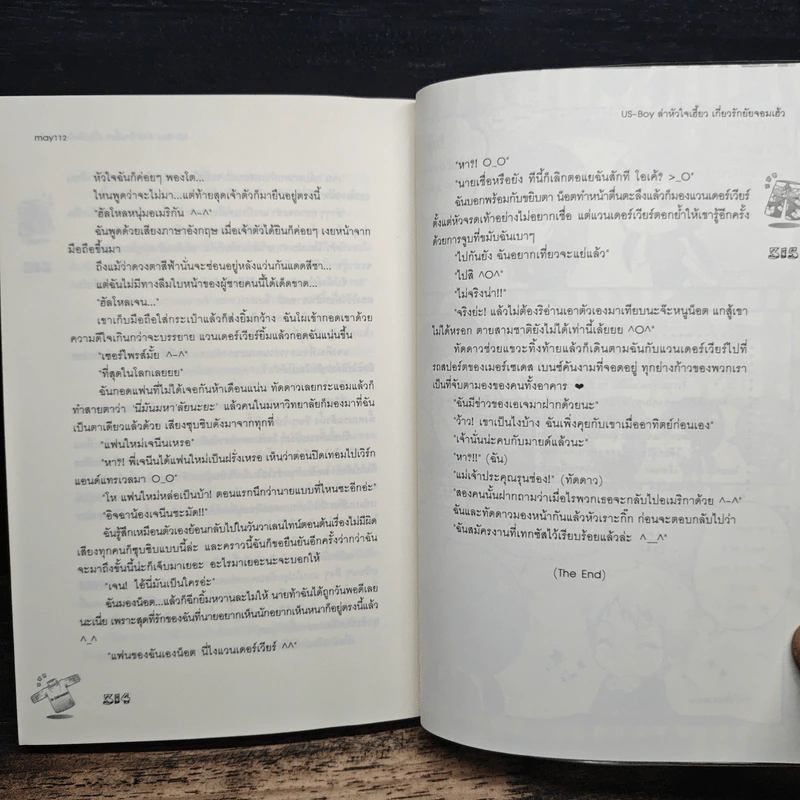 may112
หัวใจฉันก็ค่อยๆ พองโต...
ไหนพูดว่าจะไม่มา...แต่ท้ายสุดเจ้าตัวก็มายืนอยู่ตรงนี้
"ฮัลโหลหนุ่มอเมริกัน ^-^"
ฉันพูดด้วยเสียงภาษาอังกฤษ เมื่อเจ้าตัวได้ยินก็ค่อยๆ เงยหน้าจาก
มือถือขึ้นมา
ถึงแม้ว่าดวงตาสีฟ้านั่นจะซ่อนอยู่หลังแว่นกันแดดสีชา...
แต่ฉันไม่มีทางลืมใบหน้าของผู้ชายคนนี้ได้เด็ดขาด...
"ฮัลโหลเจน..."
เขาเก็บมือถือใส่กระเป๋าแล้วก็ส่งยิ้มกว้าง ฉันโผเข้ากอดเขาด้วย
ความดีใจเกินกว่าจะบรรยาย แวนเดอร์เวียร์ยิ้มแล้วกอดฉันแน่นขึ้น
"เซอร์ไพรส์มั้ย ^-^"
"ที่สุดในโลกเลยยย"
ฉันกอดแฟนที่ไม่ได้เจอกันห้าเดือนแน่น ทัดดาวเลยกระแอมแล้วก็
ทำสายตาว่า 'นี่มันมหา'ลัยนะยะ' แล้วคนในมหาวิทยาลัยก็มองมาที่ฉัน
เป็นตาเดียวแล้วด้วย เสียงซุบซิบดังมาจากทุกที่
"แฟนใหม่เจนีนเหรอ"
"หา?! พี่เจนีนได้แฟนใหม่เป็นฝรั่งเหรอ เห็นว่าตอนปิดเทอมไปเวิร์ก
แอนด์แทรเวลมา O_O"
"โห แฟนใหม่หล่อเป็นบ้า! ตอนแรกนึกว่านายแบบที่ไหนซะอีกอ่ะ"
"อิจฉาน้องเจนีนซะมัด!!"
ฉันรู้สึกเหมือนตัวเองย้อนกลับไปในวันวาเลนไทน์ตอนต้นเรื่องไม่มีผิด
เสียงทุกคนก็ซุบซิบแบบนี้ล่ะ และคราวนี้ฉันก็ขอยืนยันอีกครั้งว่ากว่าฉัน
จะมาถึงขั้นนี้น่ะก็เจ็บมาเยอะ อะไรมาเยอะนะจะบอกให้
"เจน! ไอ้นี่มันเป็นใครอ่ะ"
ฉันมองน็อต...แล้วก็ฉีกยิ้มหวานละไมให้ นายท้าฉันได้ถูกวันพอดีเลย
นะเนี่ย เพราะสุดที่รักของฉันที่นายอยากเห็นนักอยากเห็นหนาก็อยู่ตรงนี้แล้ว
^_^
"แฟนของฉันเองน็อต นี่ไงแวนเดอร์เวียร์ ^^"
314
US-Boy ล่าหัวใจเฮี้ยว เกี่ยวรักยัยจอมเฮ้ว
"หา?! O_O"
"นายเชื่อหรือยัง ทีนี้ก็เลิกตอแยฉันสักที โอเค้? >_O"
ฉันบอกพร้อมกับขยิบตา น็อตทำหน้าตื่นตะลึงแล้วก็มองแวนเดอร์เวียร์
ตั้งแต่หัวจรดเท้าอย่างไม่อยากเชื่อ แต่แวนเดอร์เวียร์ตอกย้ำให้เขารู้อีกครั้ง
ด้วยการจูบที่ขมับฉันเบาๆ
"ไปกันยัง ฉันอยากเที่ยวจะแย่แล้ว"
"ไปสิ ^O^"
"ไม่จริงน่า!!"
"จริงย่ะ! แล้วไม่ต้องริอ่านเอาตัวเองมาเทียบนะจ๊ะหนูน็อต แกสู้เขา
ไม่ได้หรอก ตายสามชาติยังไม่ได้เท่านี้เล้ยยย ^O^"
ทัดดาวช่วยแขวะทิ้งท้ายแล้วก็เดินตามฉันกับแวนเดอร์เวียร์ไปที่
รถสปอร์ตของเมอร์เซเดส เบนซ์คันงามที่จอดอยู่ ทุกย่างก้าวของพวกเรา
เป็นที่จับตามองของคนทั้งอาคาร ❤
"ฉันมีข่าวของเอเจมาฝากด้วยนะ"
"ว้าว! เขาเป็นไงบ้าง ฉันเพิ่งคุยกับเขาเมื่ออาทิตย์ก่อนเอง"
"เจ้านั่นน่ะคบกับมายด์แล้วนะ"
"หา?!!" (ฉัน)
"แม่เจ้าประคุณรุนช่อง!" (ทัดดาว)
"สองคนนั้นฝากถามว่าเมื่อไรพวกเธอจะกลับไปอเมริกาด้วย ^-^"
ฉันและทัดดาวมองหน้ากันแล้วหัวเราะกิ๊ก ก่อนจะตอบกลับไปว่า
"ฉันสมัครงานที่เทกซัสไว้เรียบร้อยแล้วล่ะ ^__^"
(The End)
315